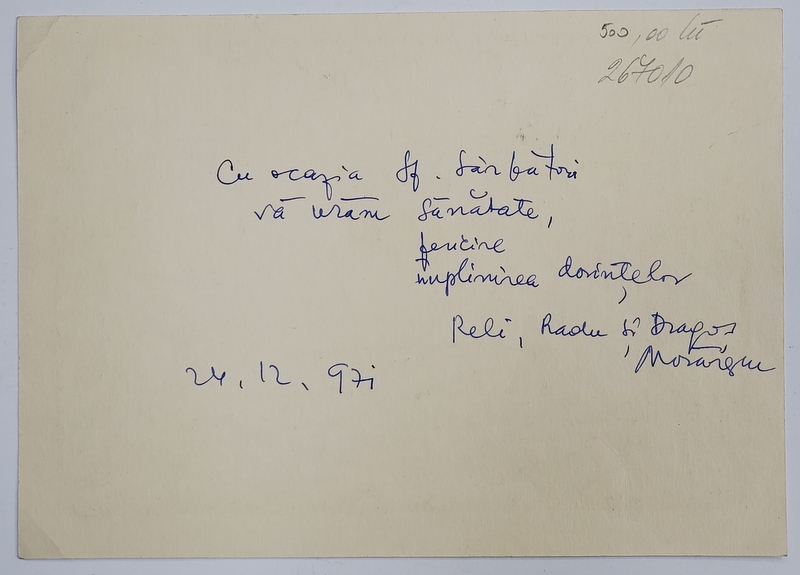 500,00 lei
267010
Cu ocazia Sf. Sărbători
vă urăm sănătate,
fericire
împlinirea dorințelor
Reli, Radu și Dragoș
24.12.97